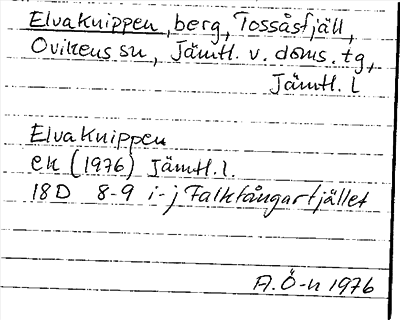 Elvaknippen, berg, Tossåsfjäll,
Ovikens sn, Jämtl. v. doms. tg,
Jämtl. l
Elvaknippen
ek (1976) Jämtl. l.
18D 8-9 i-j Falkfångarfjället
A. Ö-n 1976